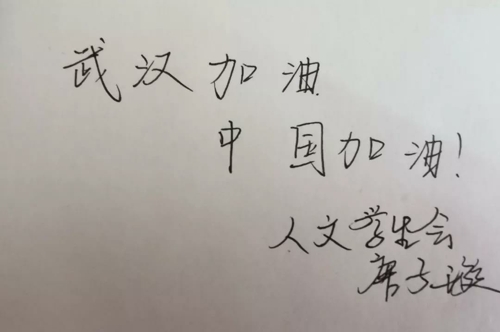 武汉加油
中国加油!
人文学生会
子